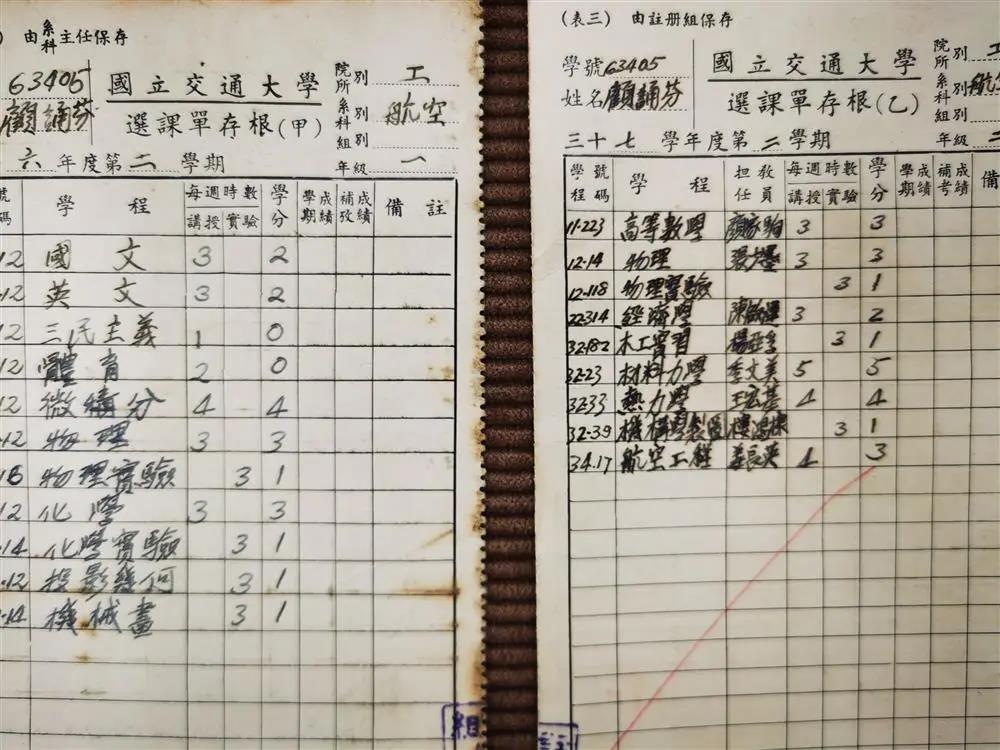 由系科主任保存
63405 國立交通大學 院所別 工
顧誦芬 選課單存根(甲) 系科組別 航空
六年度第二學期 年級 一
號碼 學程 每週時數 講授 實驗 學分 學期成績 補考成績 備註
12 國文 3 2
12 英文 3 2
12 三民主義 1 0
12 體育 2 0
12 微積分 4 4
12 物理 3 3
物理實驗 3 1
12 化學 3 3
14 化學實驗 3 1
12 投影幾何 3 1
14 機械畫 3 1
組
(表三) 由註册組保存
學號 63405 國立交通大學 院所別 工
姓名 顧誦芬 選課單存根(乙) 系科組別 航空
三十七學年度第二學期 年級 二
學程 號碼 學程 担任教員 每週時數 講授 實驗 學分 學期成績 補考成績 備
11-223 高等數學 顏家駒 3 3
12-14 物理 3 3
12-118 物理實驗 3 1
22-314 經濟學 3 2
32-182 木工實習 3 1
32-23 材料力學 季文美 5 5
32-33 熱力學 王宏基 4 4
32-39 機構學製圖 樓鴻棣 3 1
34.17 航空工程 姜長英 4 3